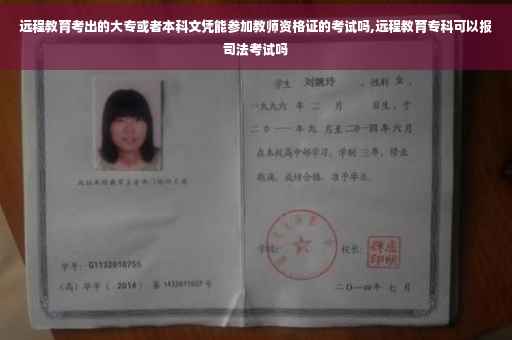 远程教育考出的大专或者本科文凭能参加教师资格证的考试吗,远程教育专科可以报
司法考试吗
学生 刘婉玲 ，性别 女 ，
一九九六 年 二 月 日生，于
二〇一一年九 月至二〇一四年 六 月
在本校高中部学习，学制 三年，修业
期满，成绩合格，准予毕业。
学号： G1132010755
学校： 校长：
（高）毕字（ 2014 ）第 1432011027 号
二〇一四年 七 月